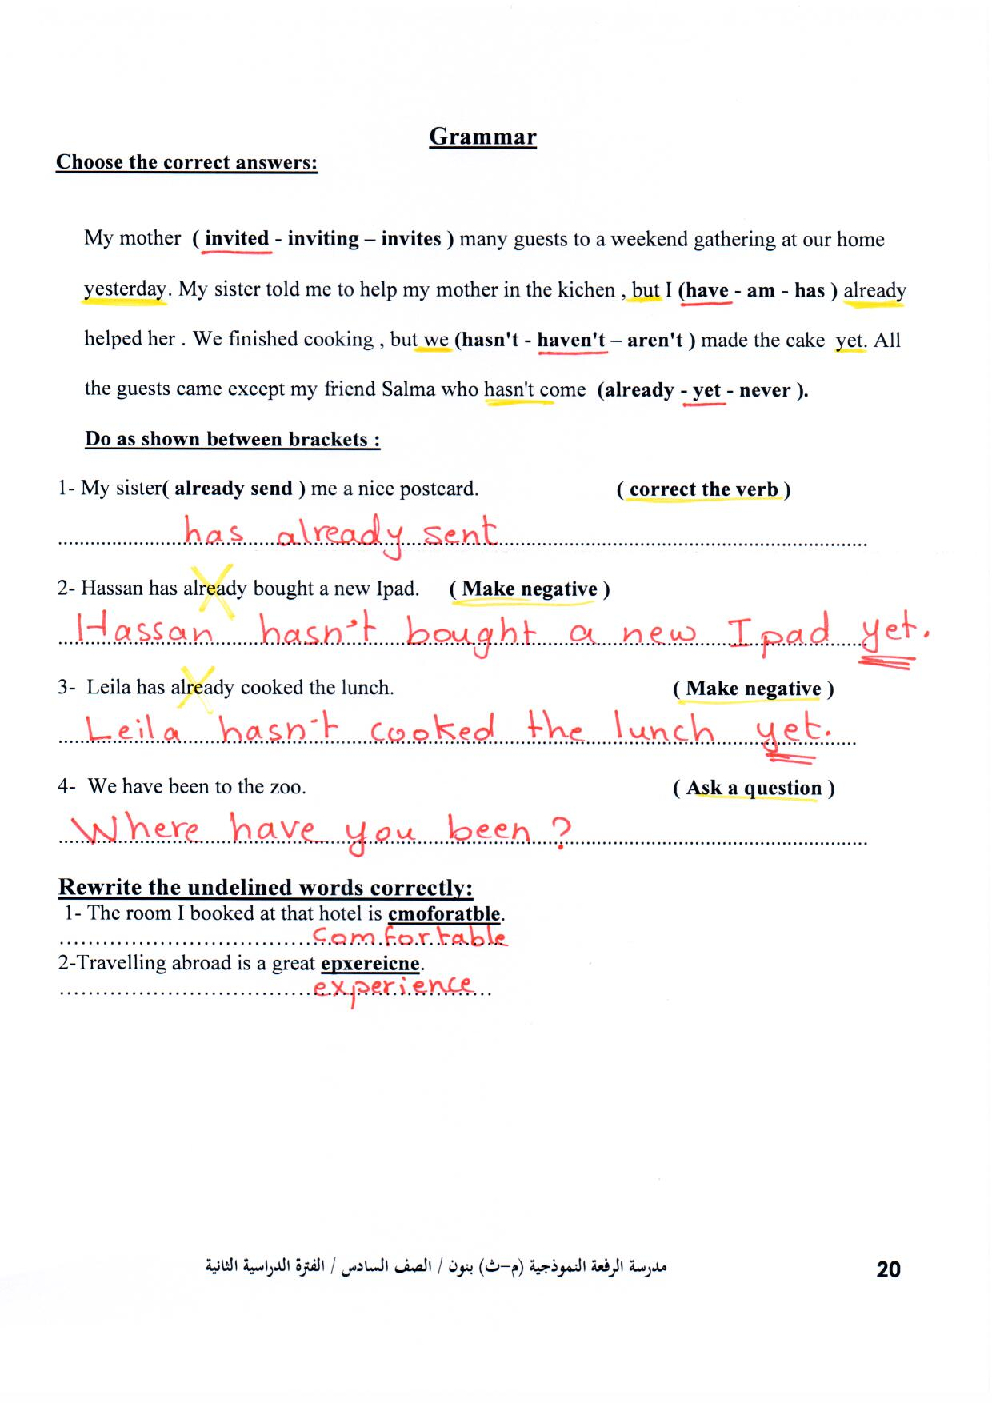 Grammar
Choose the correct answers:
My mother ( invited - inviting – invites ) many guests to a weekend gathering at our home
yesterday. My sister told me to help my mother in the kichen , but I (have - am - has ) already
helped her . We finished cooking , but we (hasn't - haven't – aren't ) made the cake yet. All
the guests came except my friend Salma who hasn't come (already - yet - never ).
Do as shown between brackets :
1- My sister( already send ) me a nice postcard. ( correct the verb )
has already sent
2- Hassan has already bought a new Ipad. ( Make negative )
Hassan hasn't bought a new Ipad yet.
3- Leila has already cooked the lunch. ( Make negative )
Leila hasn't cooked the lunch yet.
4- We have been to the zoo. ( Ask a question )
Where have you been ?
Rewrite the undelined words correctly:
1- The room I booked at that hotel is cmoforatble.
comfortable
2-Travelling abroad is a great epxereicne.
experience
مدرسة الرفعة النموذجية (م-ث) بنون / الصف السادس / الفترة الدراسية الثانية
20